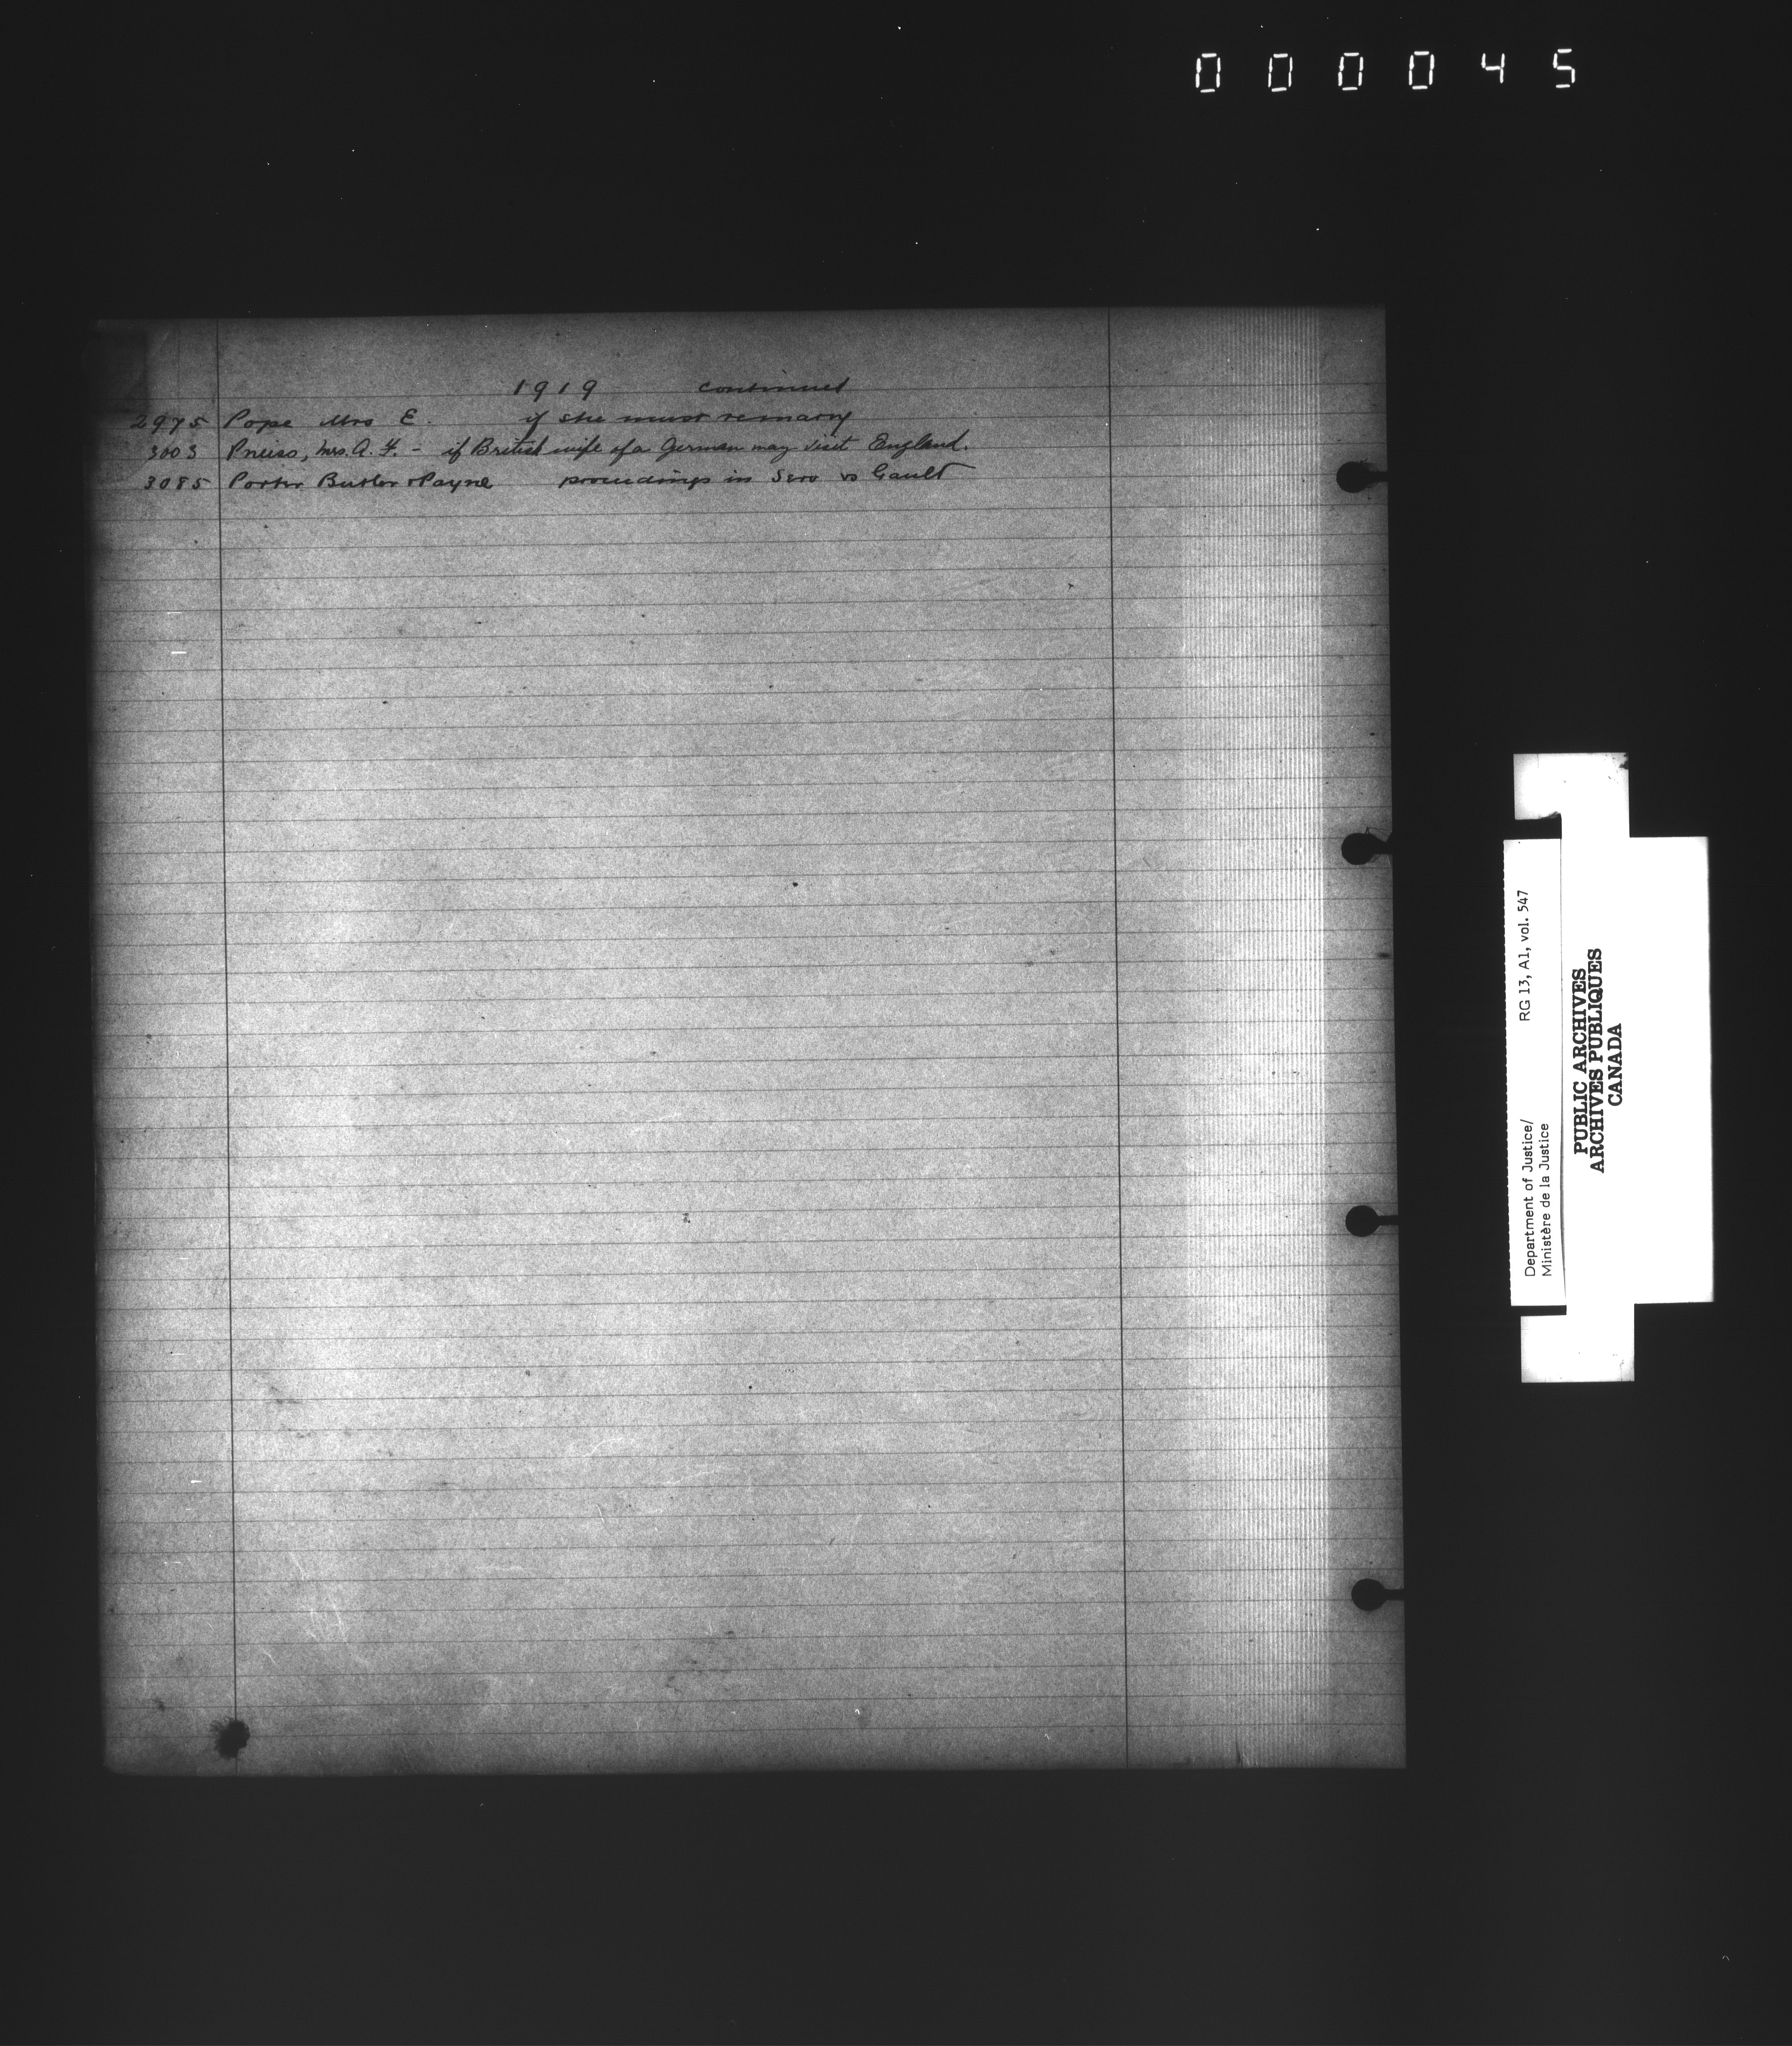 000045
1919 continued
2975 Pope Mrs E. if she must remarry
3003 Preiss, Mrs. A. F. - if British wife of a German may visit England.
3085 Porter Butler & Payne proceedings in Sero vs Gault
Department of Justice/ RG 13, A1, vol. 547
Ministère de la Justice
PUBLIC ARCHIVES
ARCHIVES PUBLIQUES
CANADA